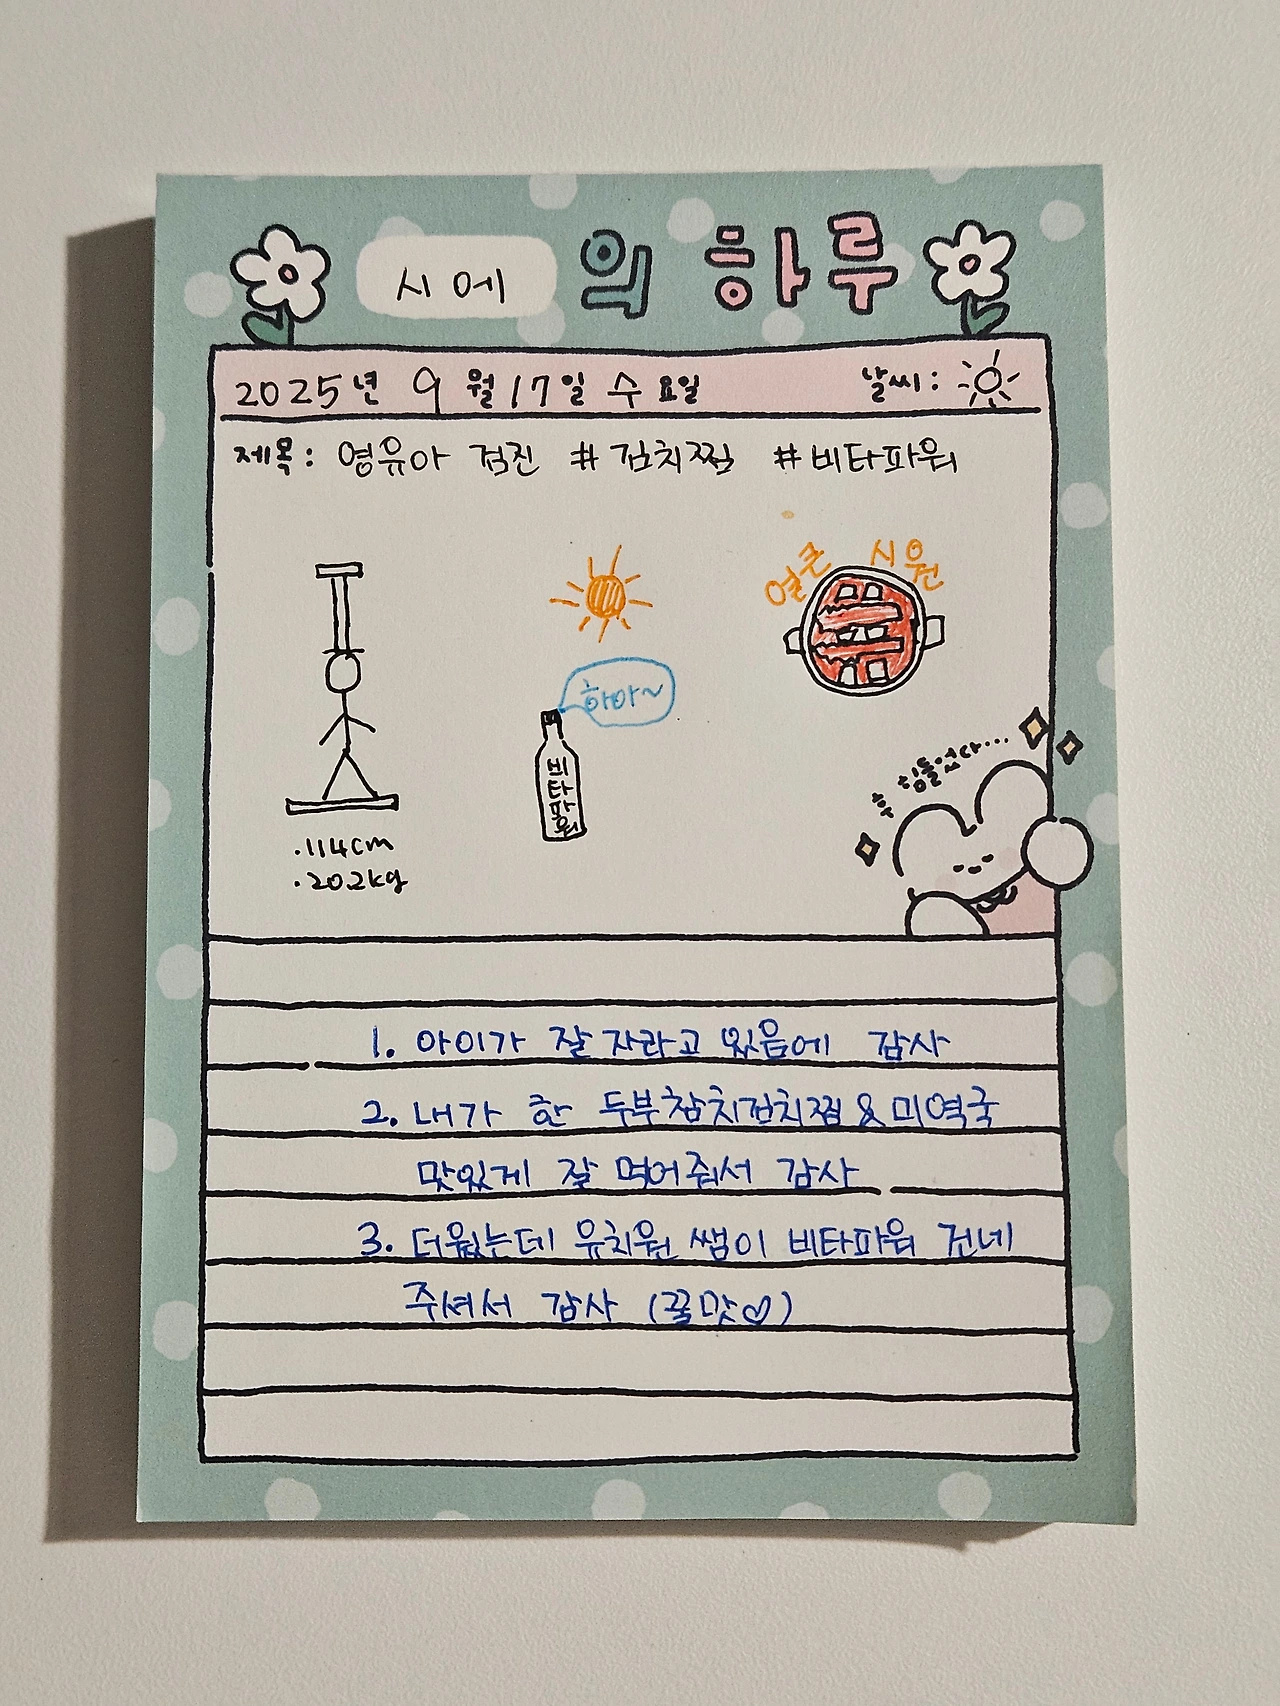 시에의 하루
2025년 9월 17일 수요일 날씨:
제목: 영유아 검진 #김치찜 #비타파워
얼큰 시원
하아~
비타파워
후 힘들었다...
.114cm
.20.2kg
1. 아이가 잘 자라고 있음에 감사
2. 내가 한 두부참치김치찜&미역국
맛있게 잘 먹어줘서 감사
3. 더웠는데 유치원 쌤이 비타파워 건네
주셔서 감사 (꿀맛♡)